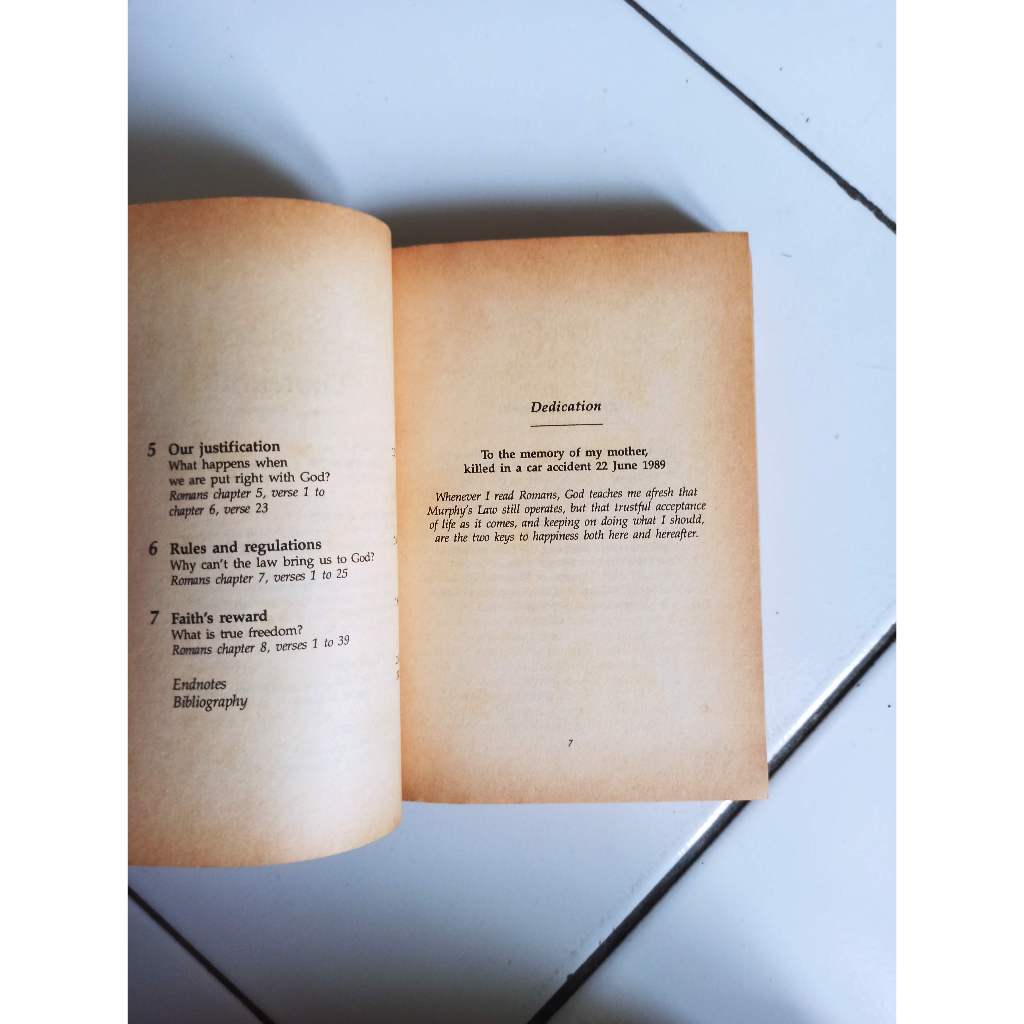 5 Our justification
What happens when
we are put right with God?
Romans chapter 5, verse 1 to
chapter 6, verse 23
6 Rules and regulations
Why can't the law bring us to God?
Romans chapter 7, verses 1 to 25
7 Faith's reward
What is true freedom?
Romans chapter 8, verses 1 to 39
Endnotes
Bibliography
Dedication
To the memory of my mother,
killed in a car accident 22 June 1989
Whenever I read Romans, God teaches me afresh that
Murphy's Law still operates, but that trustful acceptance
of life as it comes, and keeping on doing what I should,
are the two keys to happiness both here and hereafter.
7